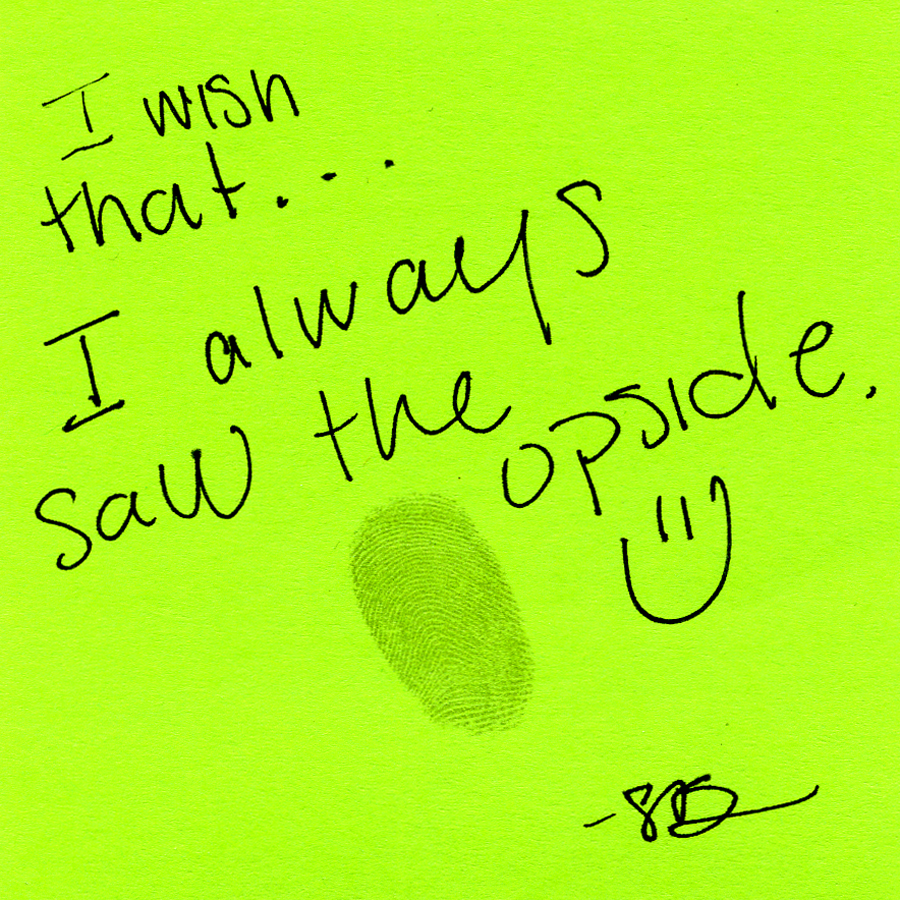 I wish
that...
I always
saw the opside.